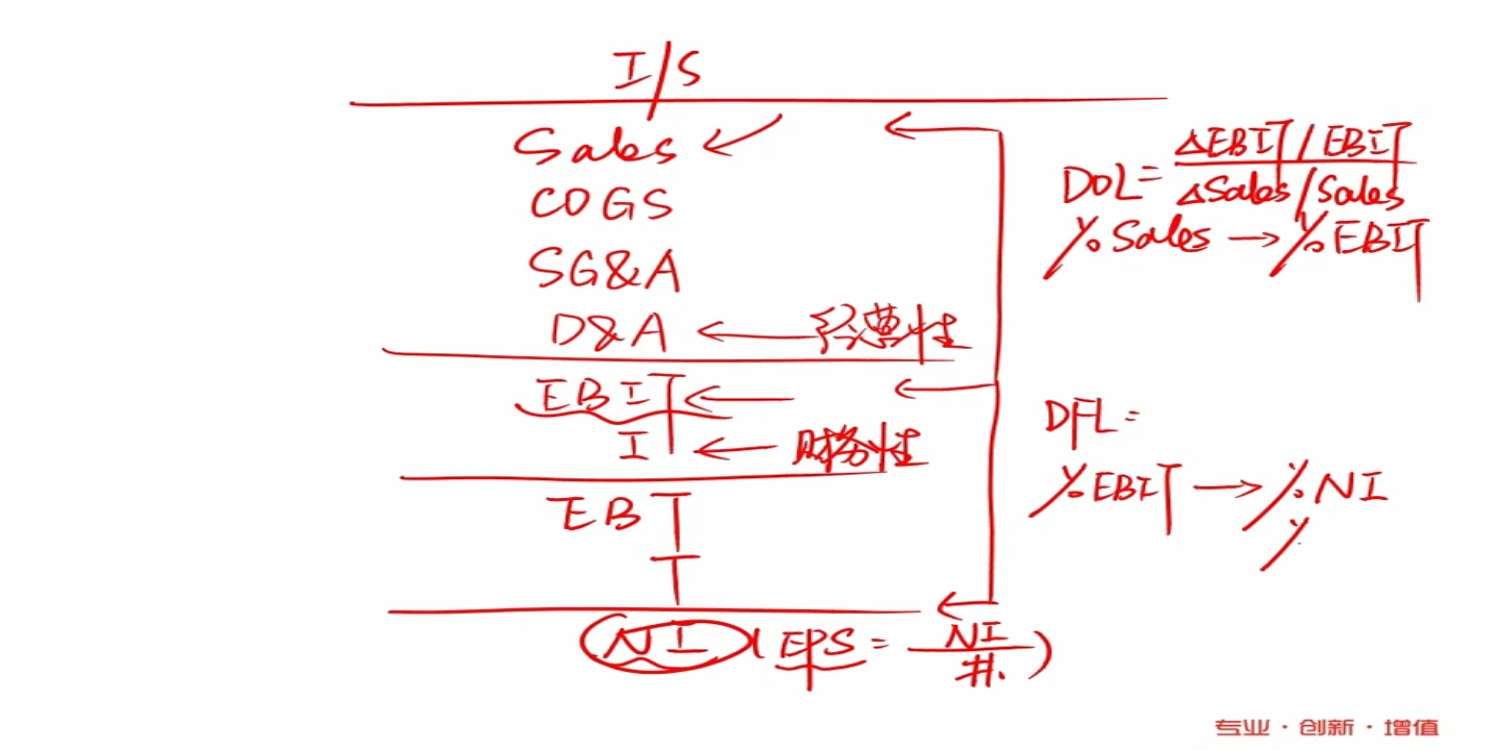 I/S
Sales
COGS
SG&A
D&A ← 经营性
EBIT ←
I ← 财务性
EBT
T
NI (EPS = NI/#.)
DOL = △EBIT/EBIT
△Sales/Sales
% Sales → % EBIT
DFL =
% EBIT → % NI
%
专业·创新·增值